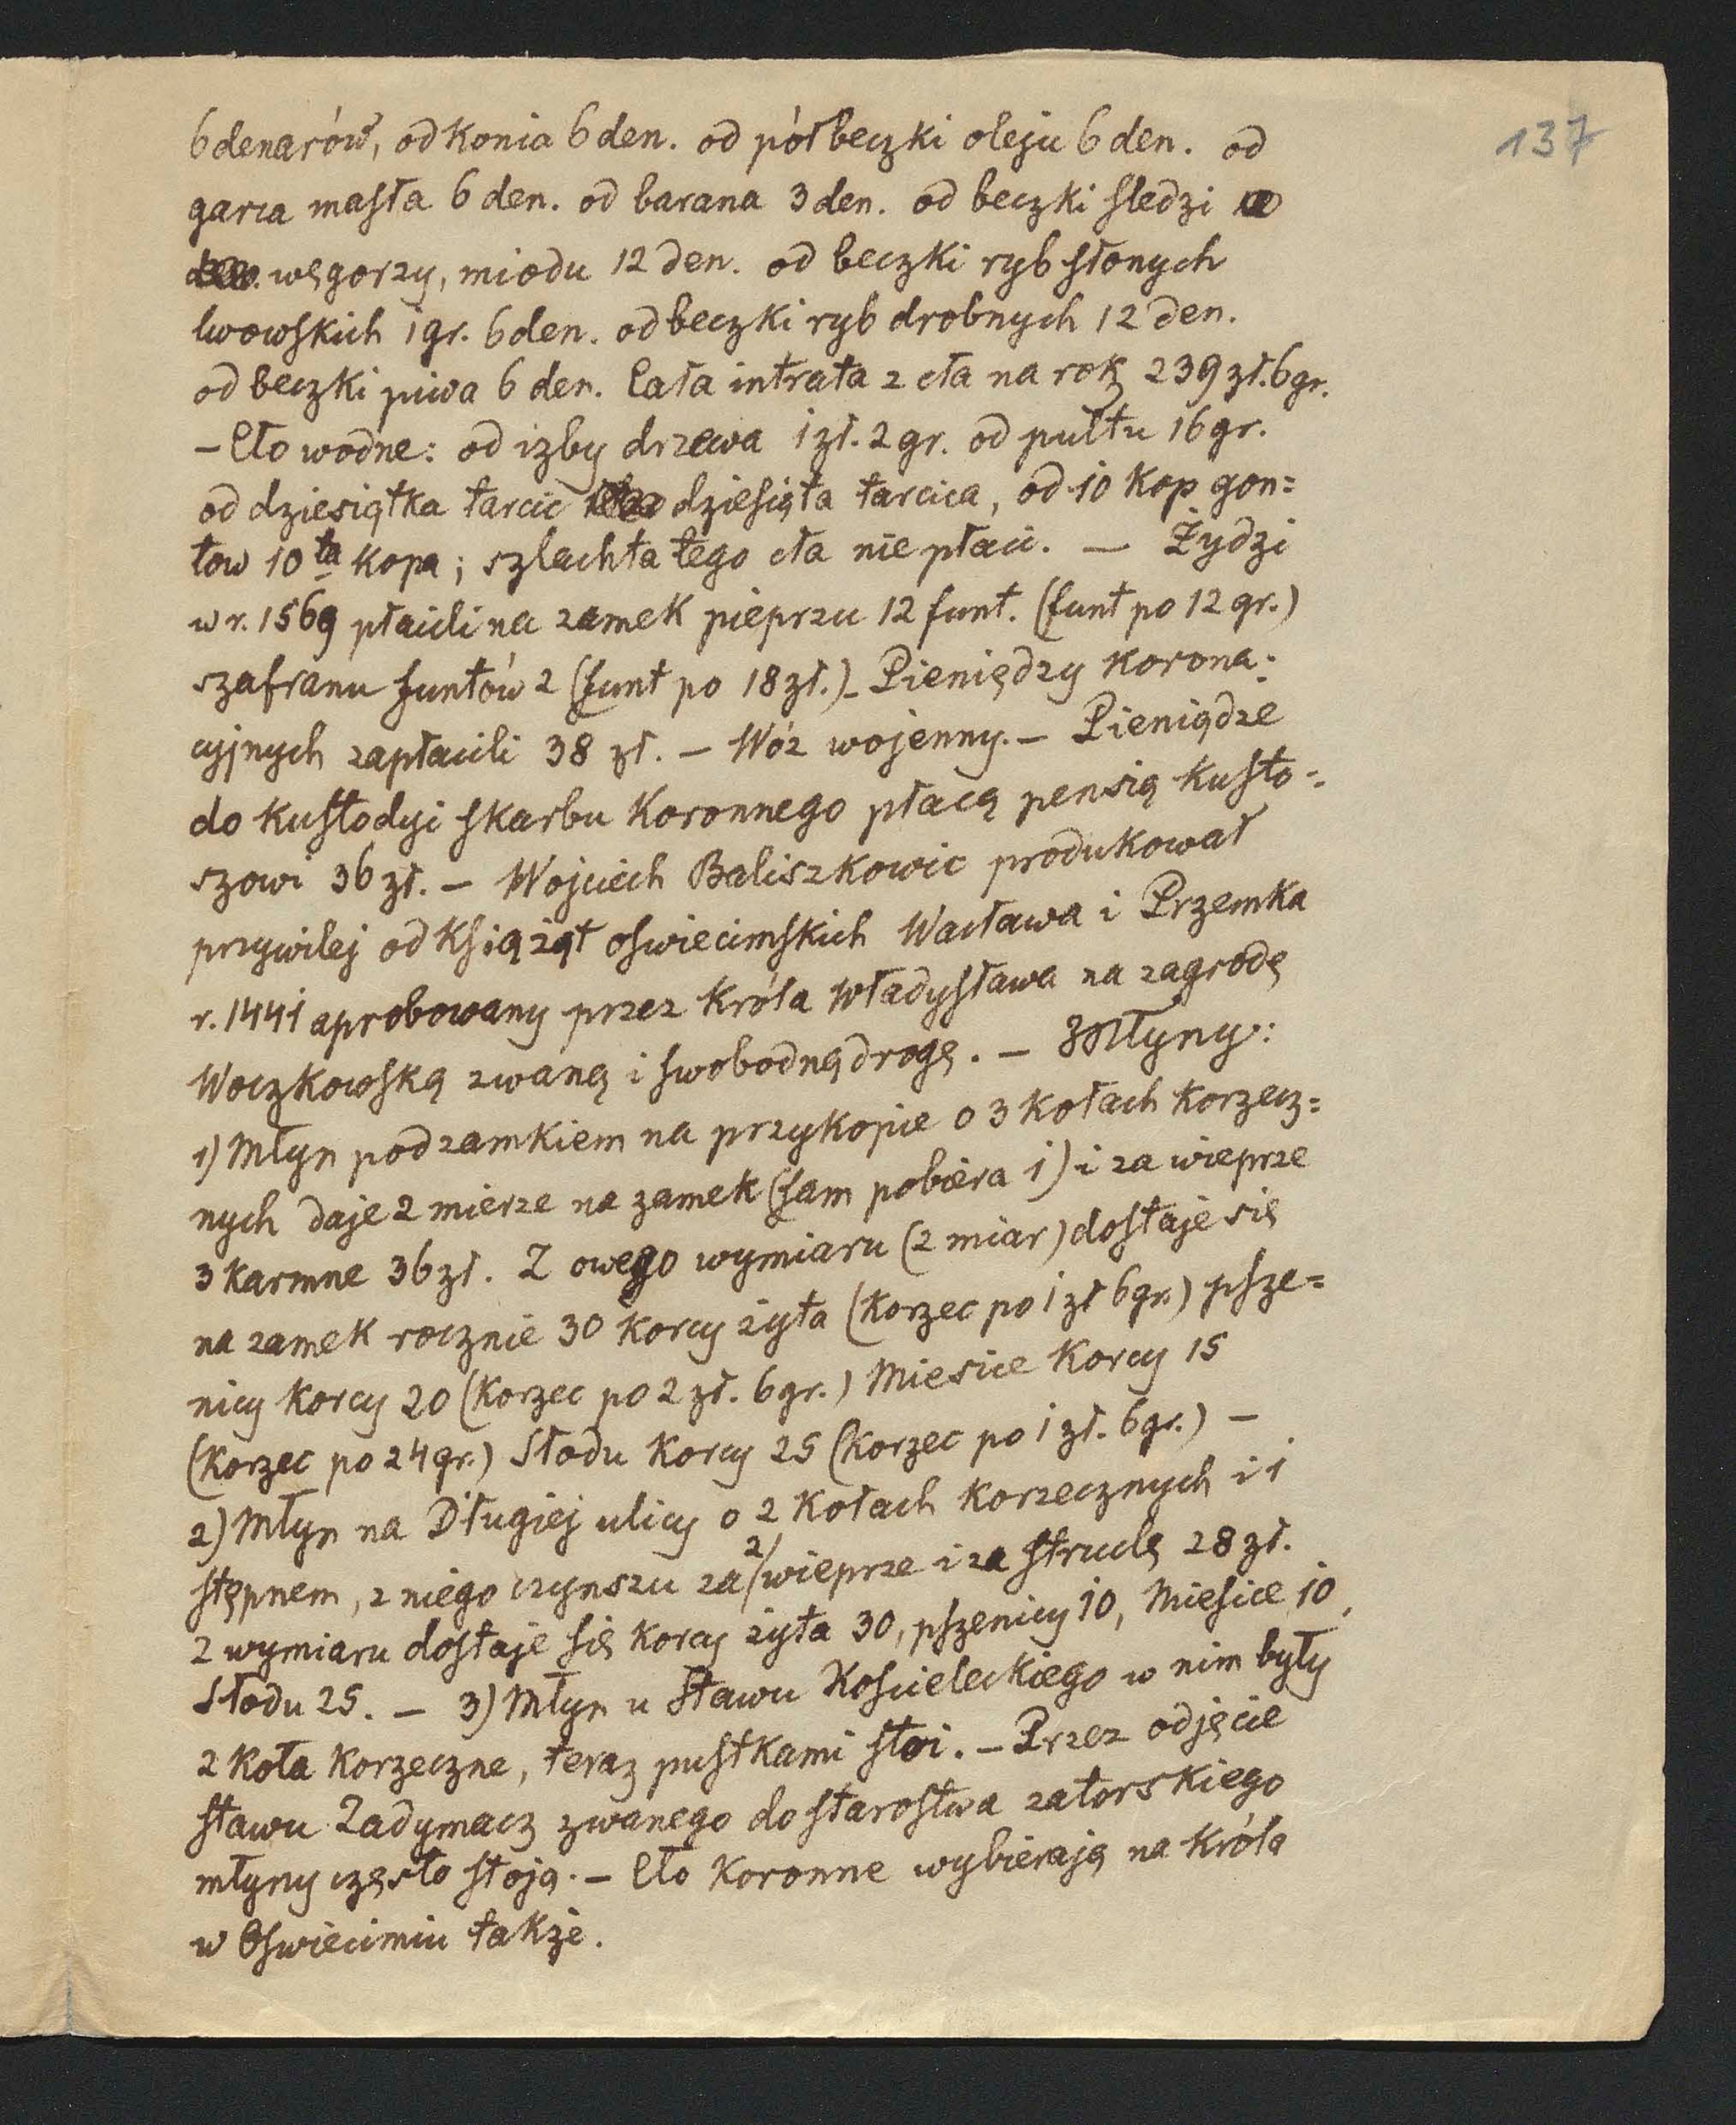 137
6 denarów, od konia 6 den. od pół beczki oleju 6 den. od
garca masła 6 den. od barana 3 den. od beczki sledzi
węgorzy, miodu 12 den. od beczki ryb słonych
lwowskich 1 gr. 6 den. od beczki ryb drobnych 12 den.
od beczki piwa 6 den. Cała intrata z cła na rok 239 zł. 6 gr.
– Cło wodne: od izby drzewa 1 zł. 2 gr. od pułtu 16 gr.
od dziesiątka tarcic dziesięta tarcica, od 10 kop gon=
tow 10ta kopa; szlachta tego cła nie płaci. — Żydzi
w r. 1569 płacili na zamek pieprzu 12 funt. (funt po 12 gr.)
szafranu funtów 2 (funt po 18 zł.) – Pieniędzy korona=
cyjnych zapłacili 38 zł. – Wóz wojenny. – Pieniądze
do kustodyi skarbu koronnego płacą pensią kusto=
szowi 36 zł. – Wojciech Baliszkowic produkował
przywilej od Książąt oswiecimskich Wacława i Przemka
r. 1441 aprobowany przez króla Władysława na zagrodę
Woczkowską zwaną i swobodną drogę. – Młyny:
1) Młyn pod zamkiem na przykopie o 3 kołach korzecz=
nych daje 2 mierze na zamek (sam pobiera 1) i za wieprze
3 karmne 36 zł. Z owego wymiaru (2 miar) dostaje się
na zamek rocznie 30 korcy żyta (korzec po 1 zł 6 gr.) psze=
nicy korcy 20 (korzec po 2 zł. 6 gr.) Miesice korcy 15
(korzec po 24 gr.) Słodu korcy 25 (korzec po 1 zł. 6 gr.) –
2) Młyn na Długiej ulicy o 2 kołach korzecznych i 1
stępnem, z niego czynszu za 2/ wieprze i za struclę 28 zł.
z wymiaru dostaje się korcy żyta 30, pszenicy 10, Miesice 10,
Słodu 25. – 3) Młyn u stawu Kościeleckiego w nim były
2 koła korzeczne, teraz pustkami stoi. – Przez odjęcie
stawu Zadymacz zwanego do starostwa zatorskiego
młyny często stoją. – Cło koronne wybierają na króla
w Oswiecimiu także.